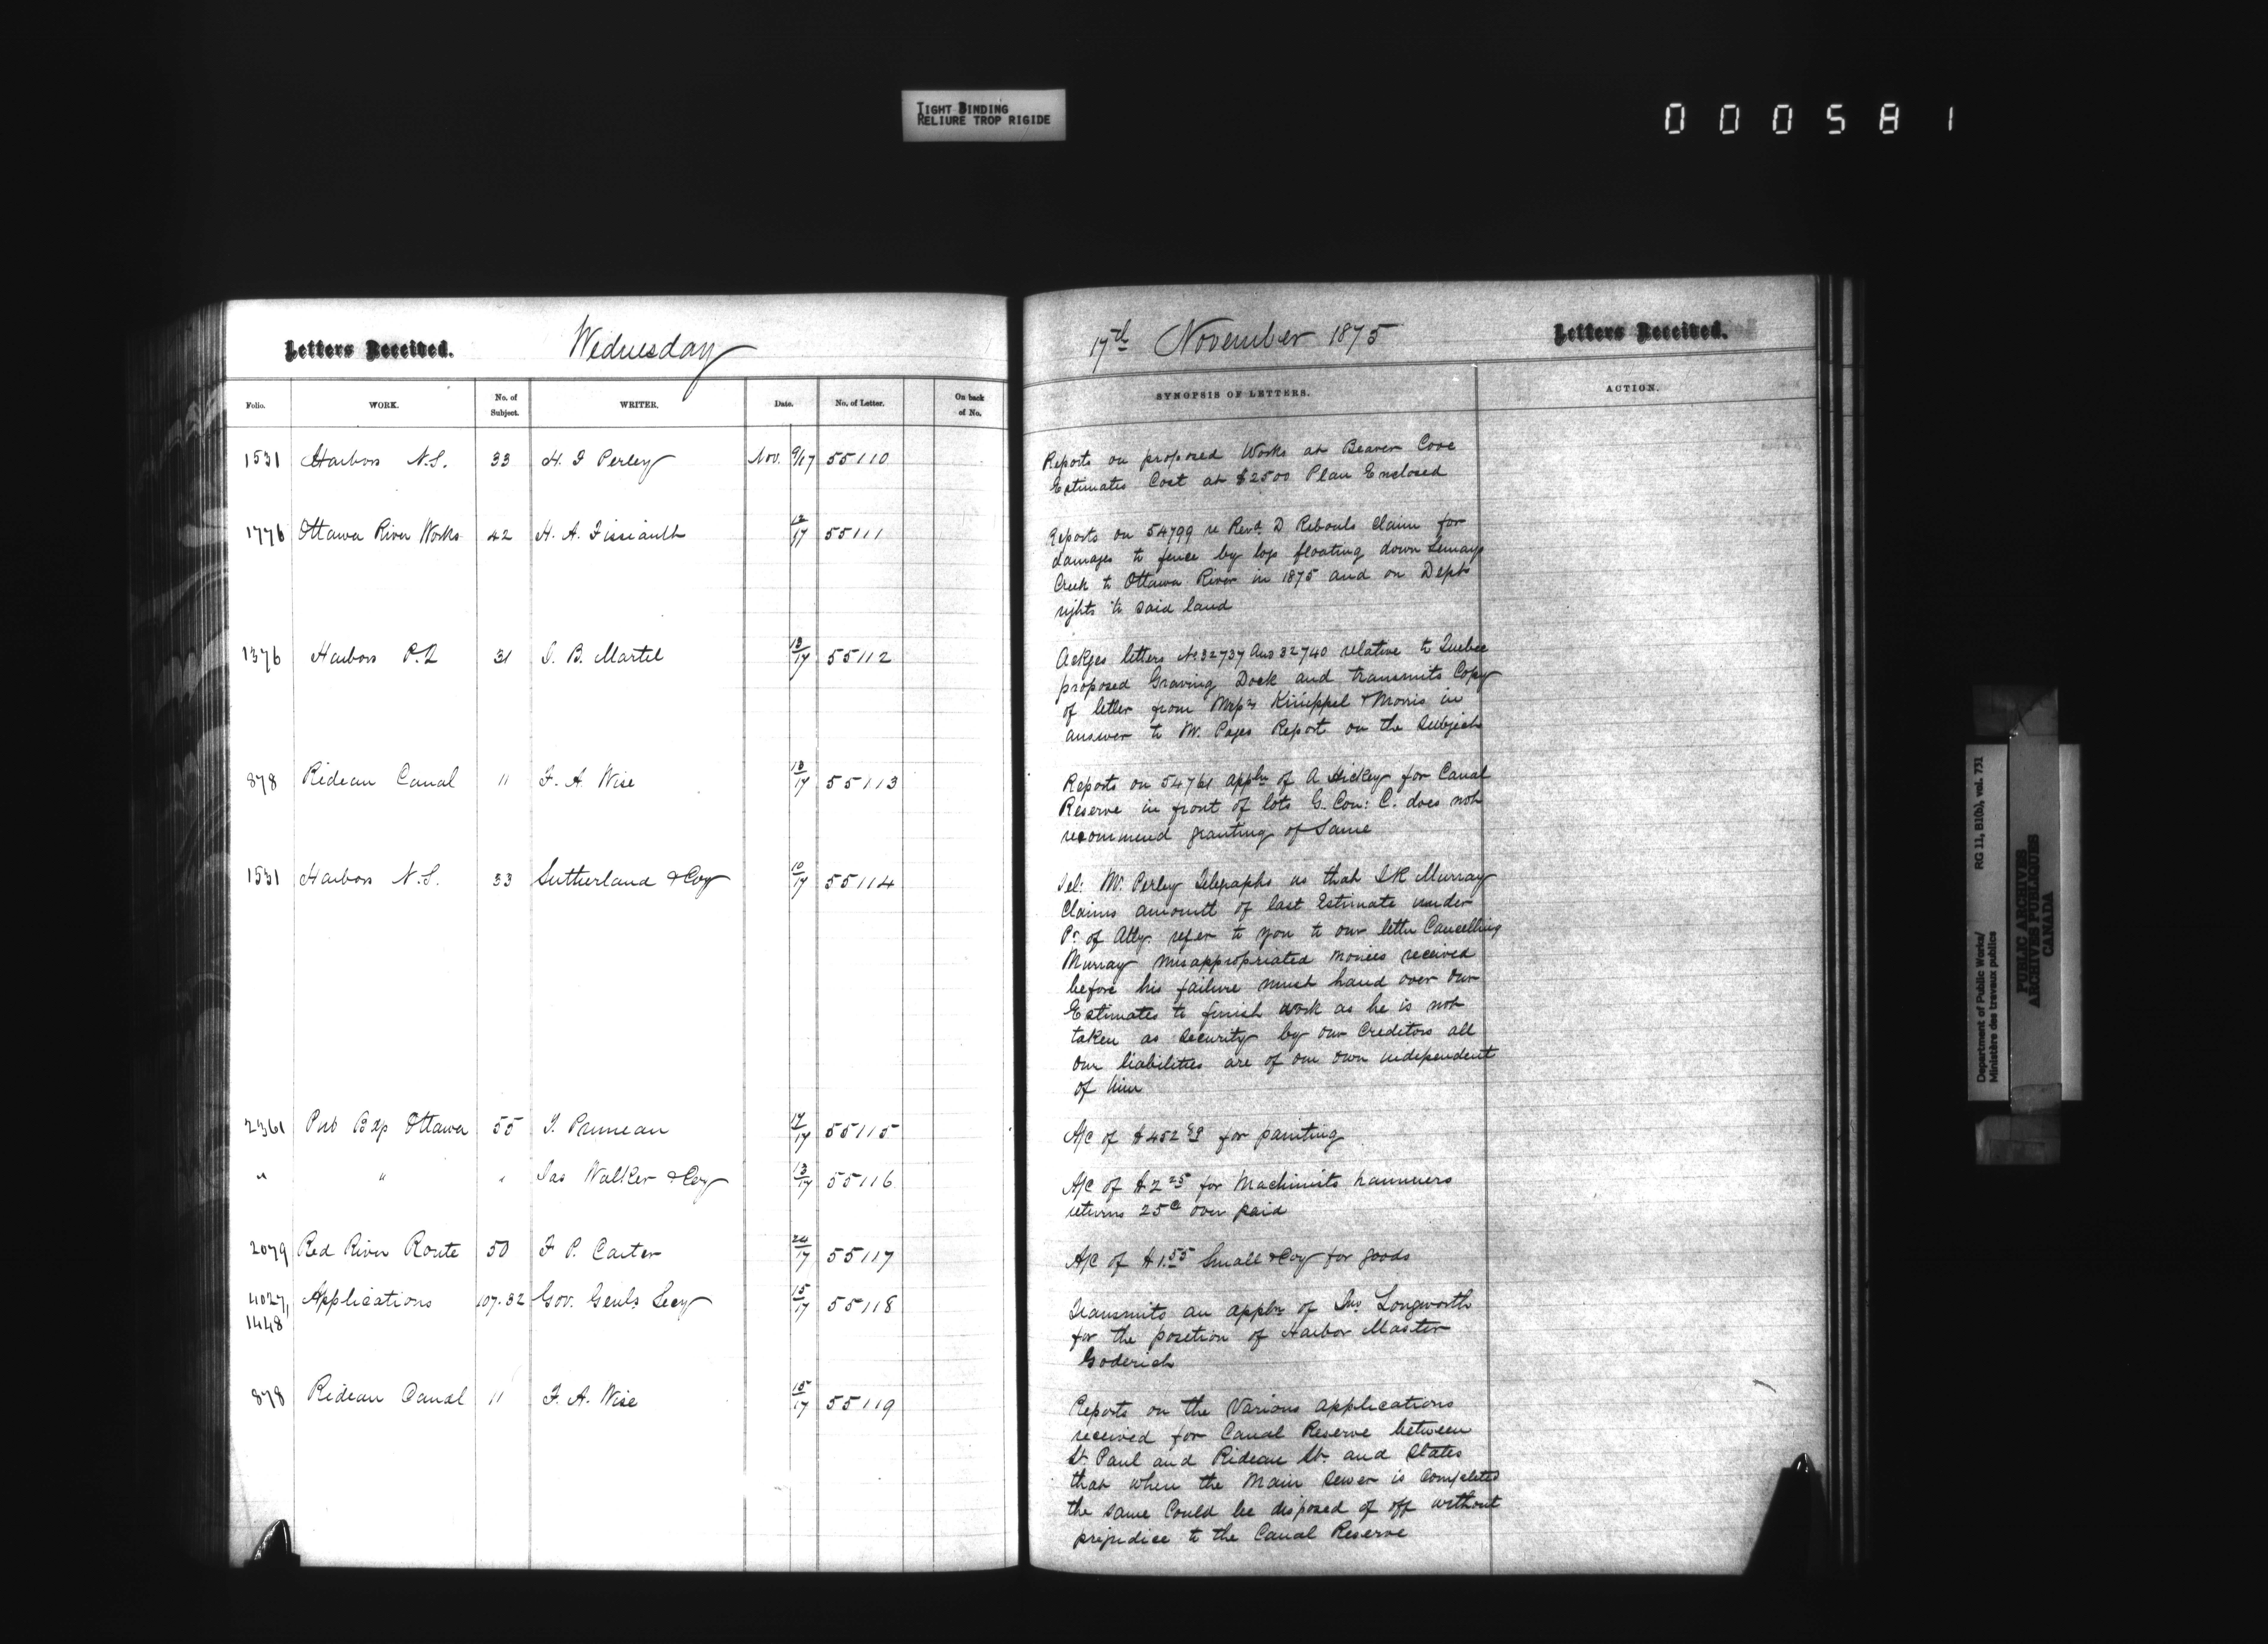 TIGHT BINDING
RELIURE TROP RIGIDE
000581
Letters Received. Wednesday
Folio. WORK. No. of Subject. WRITER. Date. No. of Letter. On back of No.
1531 Harbors N.S. 33 H. F Perley Nov. 9/17 55110
1776 Ottawa River Works 42 H. A. Fissiault 12/17 55111
1376 Harbors P.Q 31 J. B. Martel 13/17 55112
878 Rideau Canal 11 F. A Wise 13/17 55113
1531 Harbors N.S. 33 Sutherland & Coy 10/17 55114
2361 Pub Bdgs Ottawa 55 J. Pruneau 17/17 55115
" " " Jas Walker & Coy 13/17 55116
2079 Red River Route 50 F P. Carter 24/17 55117
4027, Applications 107.32 Gov. Genls Secy 15/17 55118
1448
878 Rideau Canal 11 F. A. Wise 15/17 55119
17th November 1875 Letters Received.
SYNOPSIS OF LETTERS. ACTION.
Reports on proposed Works at Beaver Cove
Estimates Cost at $2500 Plan Enclosed
Reports on 54799 re Revd. D Rebouls Claim for
damages to fence by logs floating down Lemays
Creek to Ottawa River in 1875 and on Depts
rights to said land
Ackges letters No 32737 and 32740 relative to Quebec
proposed Graving Dock and transmits Copy
of letter from Messrs Kinippel & Morris in
answer to Mr. Pages Report on the Subject
Reports on 54761 appln of A Hickey for Canal
Reserve in front of lots G. Con: C. does not
recommend granting of Same
Tel: Mr. Perley Telegraphs us that J R Murray
Claims amount of last Estimate under
Pr. of Atty. refer to you to our letter Cancelling
Murray misappropriated monies received
before his failure must hand over our
Estimates to finish work as he is not
taken as security by our Creditors all
our liabilities are of our own independent
of him
A/c of $452 89 for painting
A/c of $2 25 for Machinists hammers
returns 25c over paid
A/c of $1.55 Small & Coy for goods
Transmits an appln of Jno Longworth
for the position of Harbor Master
Goderich
Reports on the Various applications
received for Canal Reserve between
St Paul and Rideau St. and States
that when the Main Sewer is Completed
the same Could be disposed of off without
prejudice to the Canal Reserve
Department of Public Works/ RG 11, B1(b), vol. 731
Ministère des travaux publics
PUBLIC ARCHIVES
ARCHIVES PUBLIQUES
CANADA